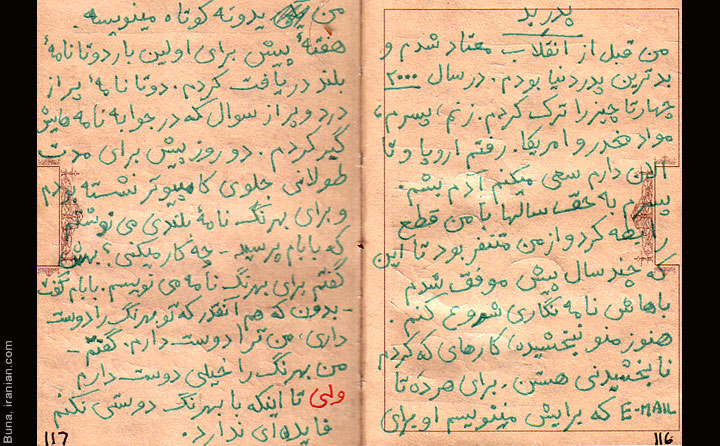 پدر بد
من قبل از انقلاب معتاد شدم و
بدترین پدر دنیا بودم. در سال ۲۰۰۰
چهارتا چیز را ترک کردم. زنم، پسرم،
مواد مخدر و امریکا. رفتم اروپا و تا
الان دارم سعی میکنم آدم بشم.
پسرم به حق سالها با من قطع
رابطه کرد و از من متنفر بود تا این
که چند سال پیش موفق شدم
باهاش نامه نگاری شروع کنم.
هنوز منو نبخشیده، کارهای که کردم
نابخشیدنی هستن. برای هر ده تا
E-MAIL که برایش مینویسم او برای
116
من یدونه کوتاه مینویسه.
هفتهٔ پیش برای اولین بار دوتا نامهٔ
بلند دریافت کردم. دوتا نامهٔ پر از
درد و پر از سوال که در جوابه نامه هایش
گیر کردم. دو روز پیش برای مدت
طولانی جلوی کامپیوتر نشسته بودم
و برای بهرنگ نامهٔ بلندی می نوشتم
که بابام پرسید - چه کار میکنی؟ بهش
گفتم برای بهرنگ نامه می نویسم. بابام گفت
- بدون که هم آنقدر که تو بهرنگ را دوست
داری، من ترا دوست دارم. گفتم -
من بهرنگ را خیلی دوست دارم
ولی تا اینکه با بهرنگ دوستی نکنم
فایده ای ندارد.
117
Buna, iranian.com